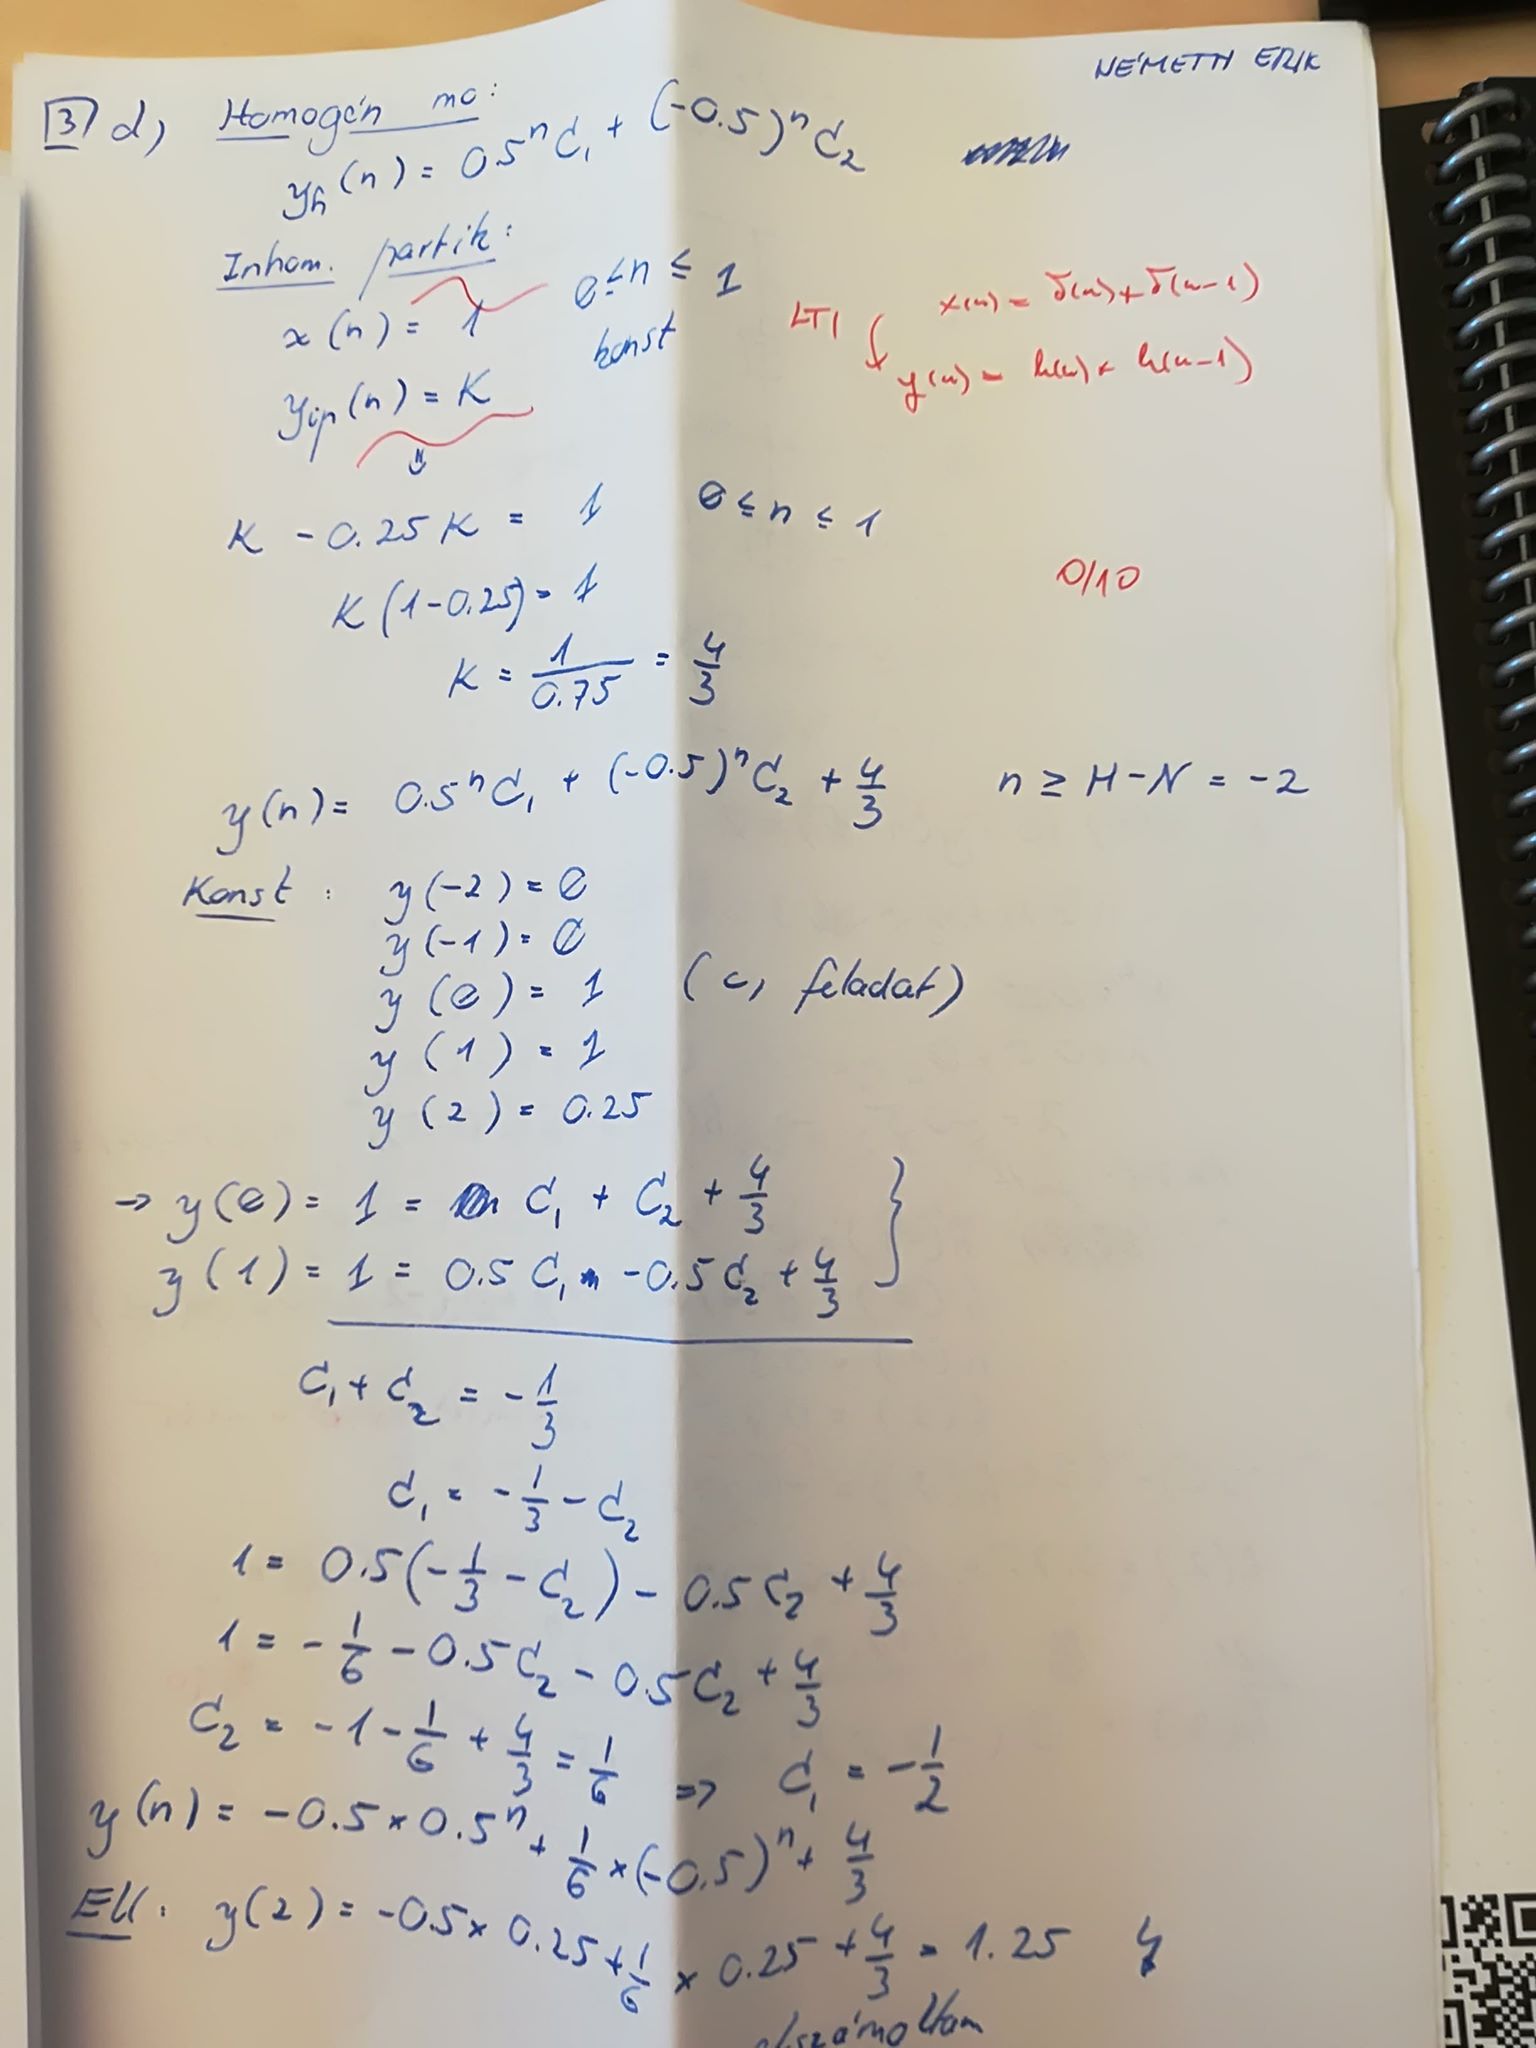 NÉMETH ERIK
3 d) Homogén mo:
yh(n) = 0.5ⁿC₁ + (-0.5)ⁿC₂
Inhom. partik:
x(n) = 1 0≤n≤1
konst
LTI x(n) = δ(n)+δ(n-1)
y(n) = h(n)+h(n-1)
yip(n) = K
K - 0.25K = 1 0≤n≤1
K(1-0.25) = 1
0/10
K = 1/0.75 = 4/3
y(n) = 0.5ⁿC₁ + (-0.5)ⁿC₂ + 4/3 n ≥ M-N = -2
Konst: y(-2) = 0
y(-1) = 0
y(0) = 1 (c, feladat)
y(1) = 1
y(2) = 0.25
→ y(0) = 1 = C₁ + C₂ + 4/3 }
y(1) = 1 = 0.5C₁ -0.5C₂ + 4/3
C₁ + C₂ = -1/3
C₁ = -1/3 - C₂
1 = 0.5(-1/3 - C₂) - 0.5C₂ + 4/3
1 = -1/6 - 0.5C₂ - 0.5C₂ + 4/3
C₂ = -1 - 1/6 + 4/3 = 1/6 => C₁ = -1/2
y(n) = -0.5×0.5ⁿ + 1/6×(-0.5)ⁿ + 4/3
Ell: y(2) = -0.5×0.25+1/6×0.25+4/3 = 1.25 ↯
elszámoltam